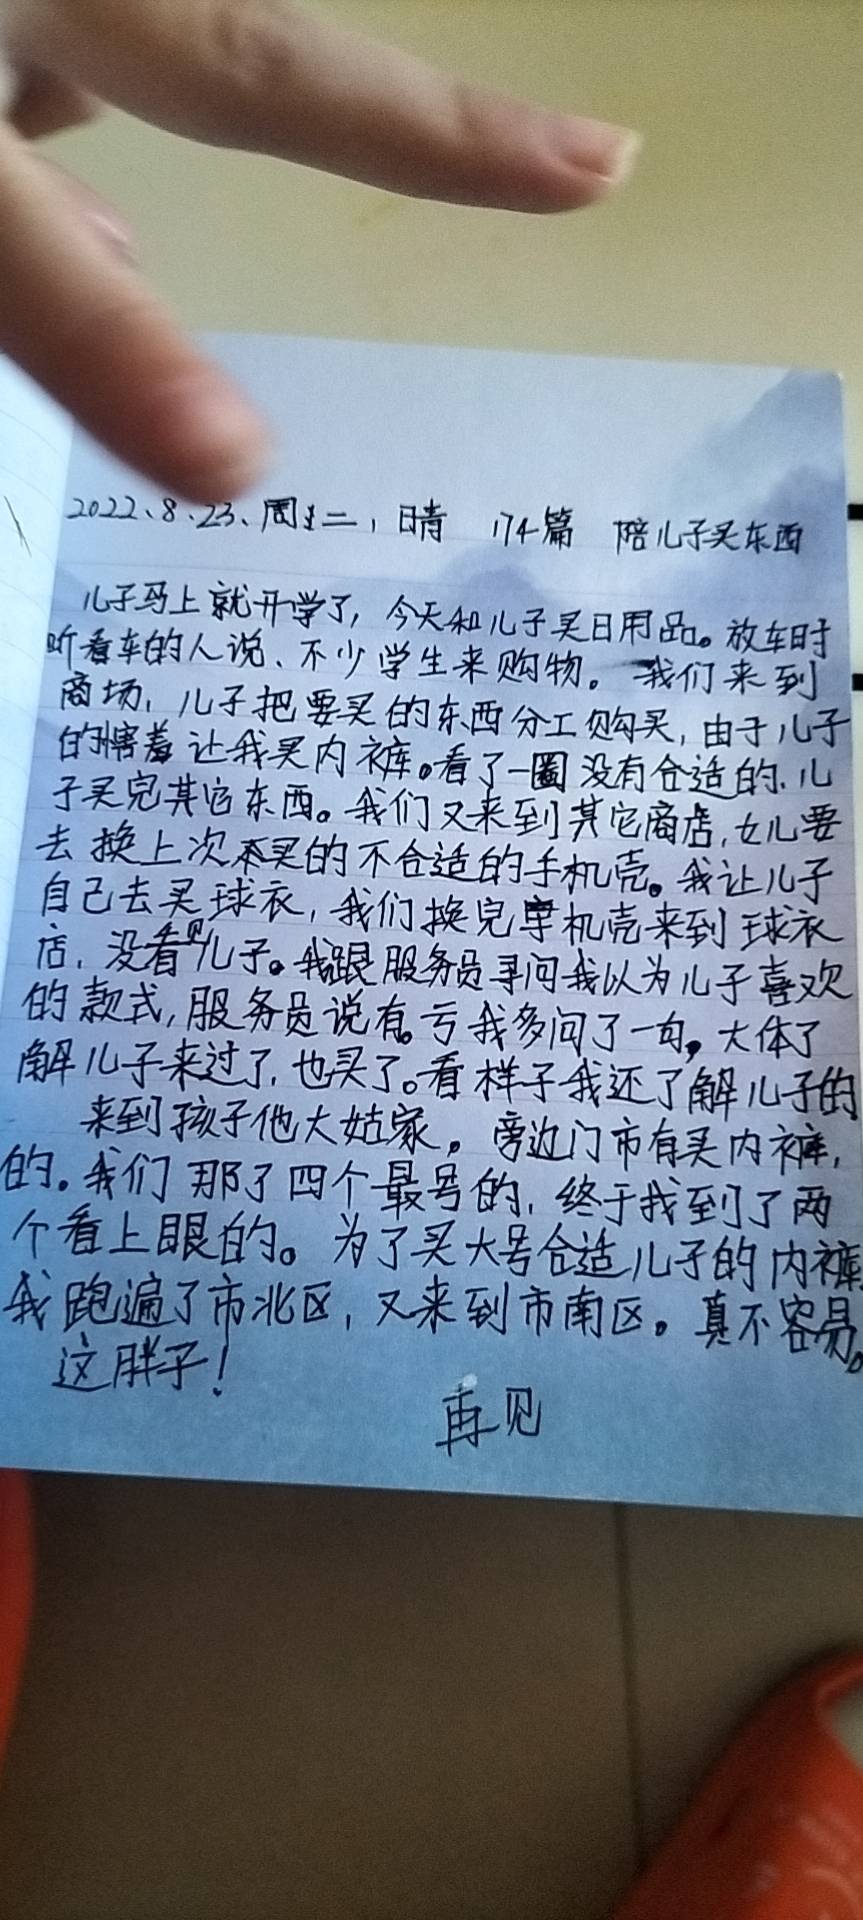 2022、8、23、周二，晴 174篇 陪儿子买东西
儿子马上就开学了，今天和儿子买日用品。放车时
听看车的人说、不少学生来购物。我们来到
商场，儿子把要买的东西分工购买，由于儿子
的害羞让我买内裤。看了一圈没有合适的、儿
子买完其它东西。我们又来到其它商店，女儿要
去换上次买的不合适的手机壳。我让儿子
自己去买球衣，我们换完手机壳来到球衣
店，没看见儿子。我跟服务员寻问我以为儿子喜欢
的款式，服务员说有。亏我多问了一句，大体了
解儿子来过了，也买了。看样子我还了解儿子的
来到孩子他大姑家，旁边门市有买内裤，
的。我们那了四个最号的，终于找到了两
个看上眼的。为了买大号合适儿子的内裤
我跑遍了市北区，又来到市南区。真不容易。
这胖子！
再见